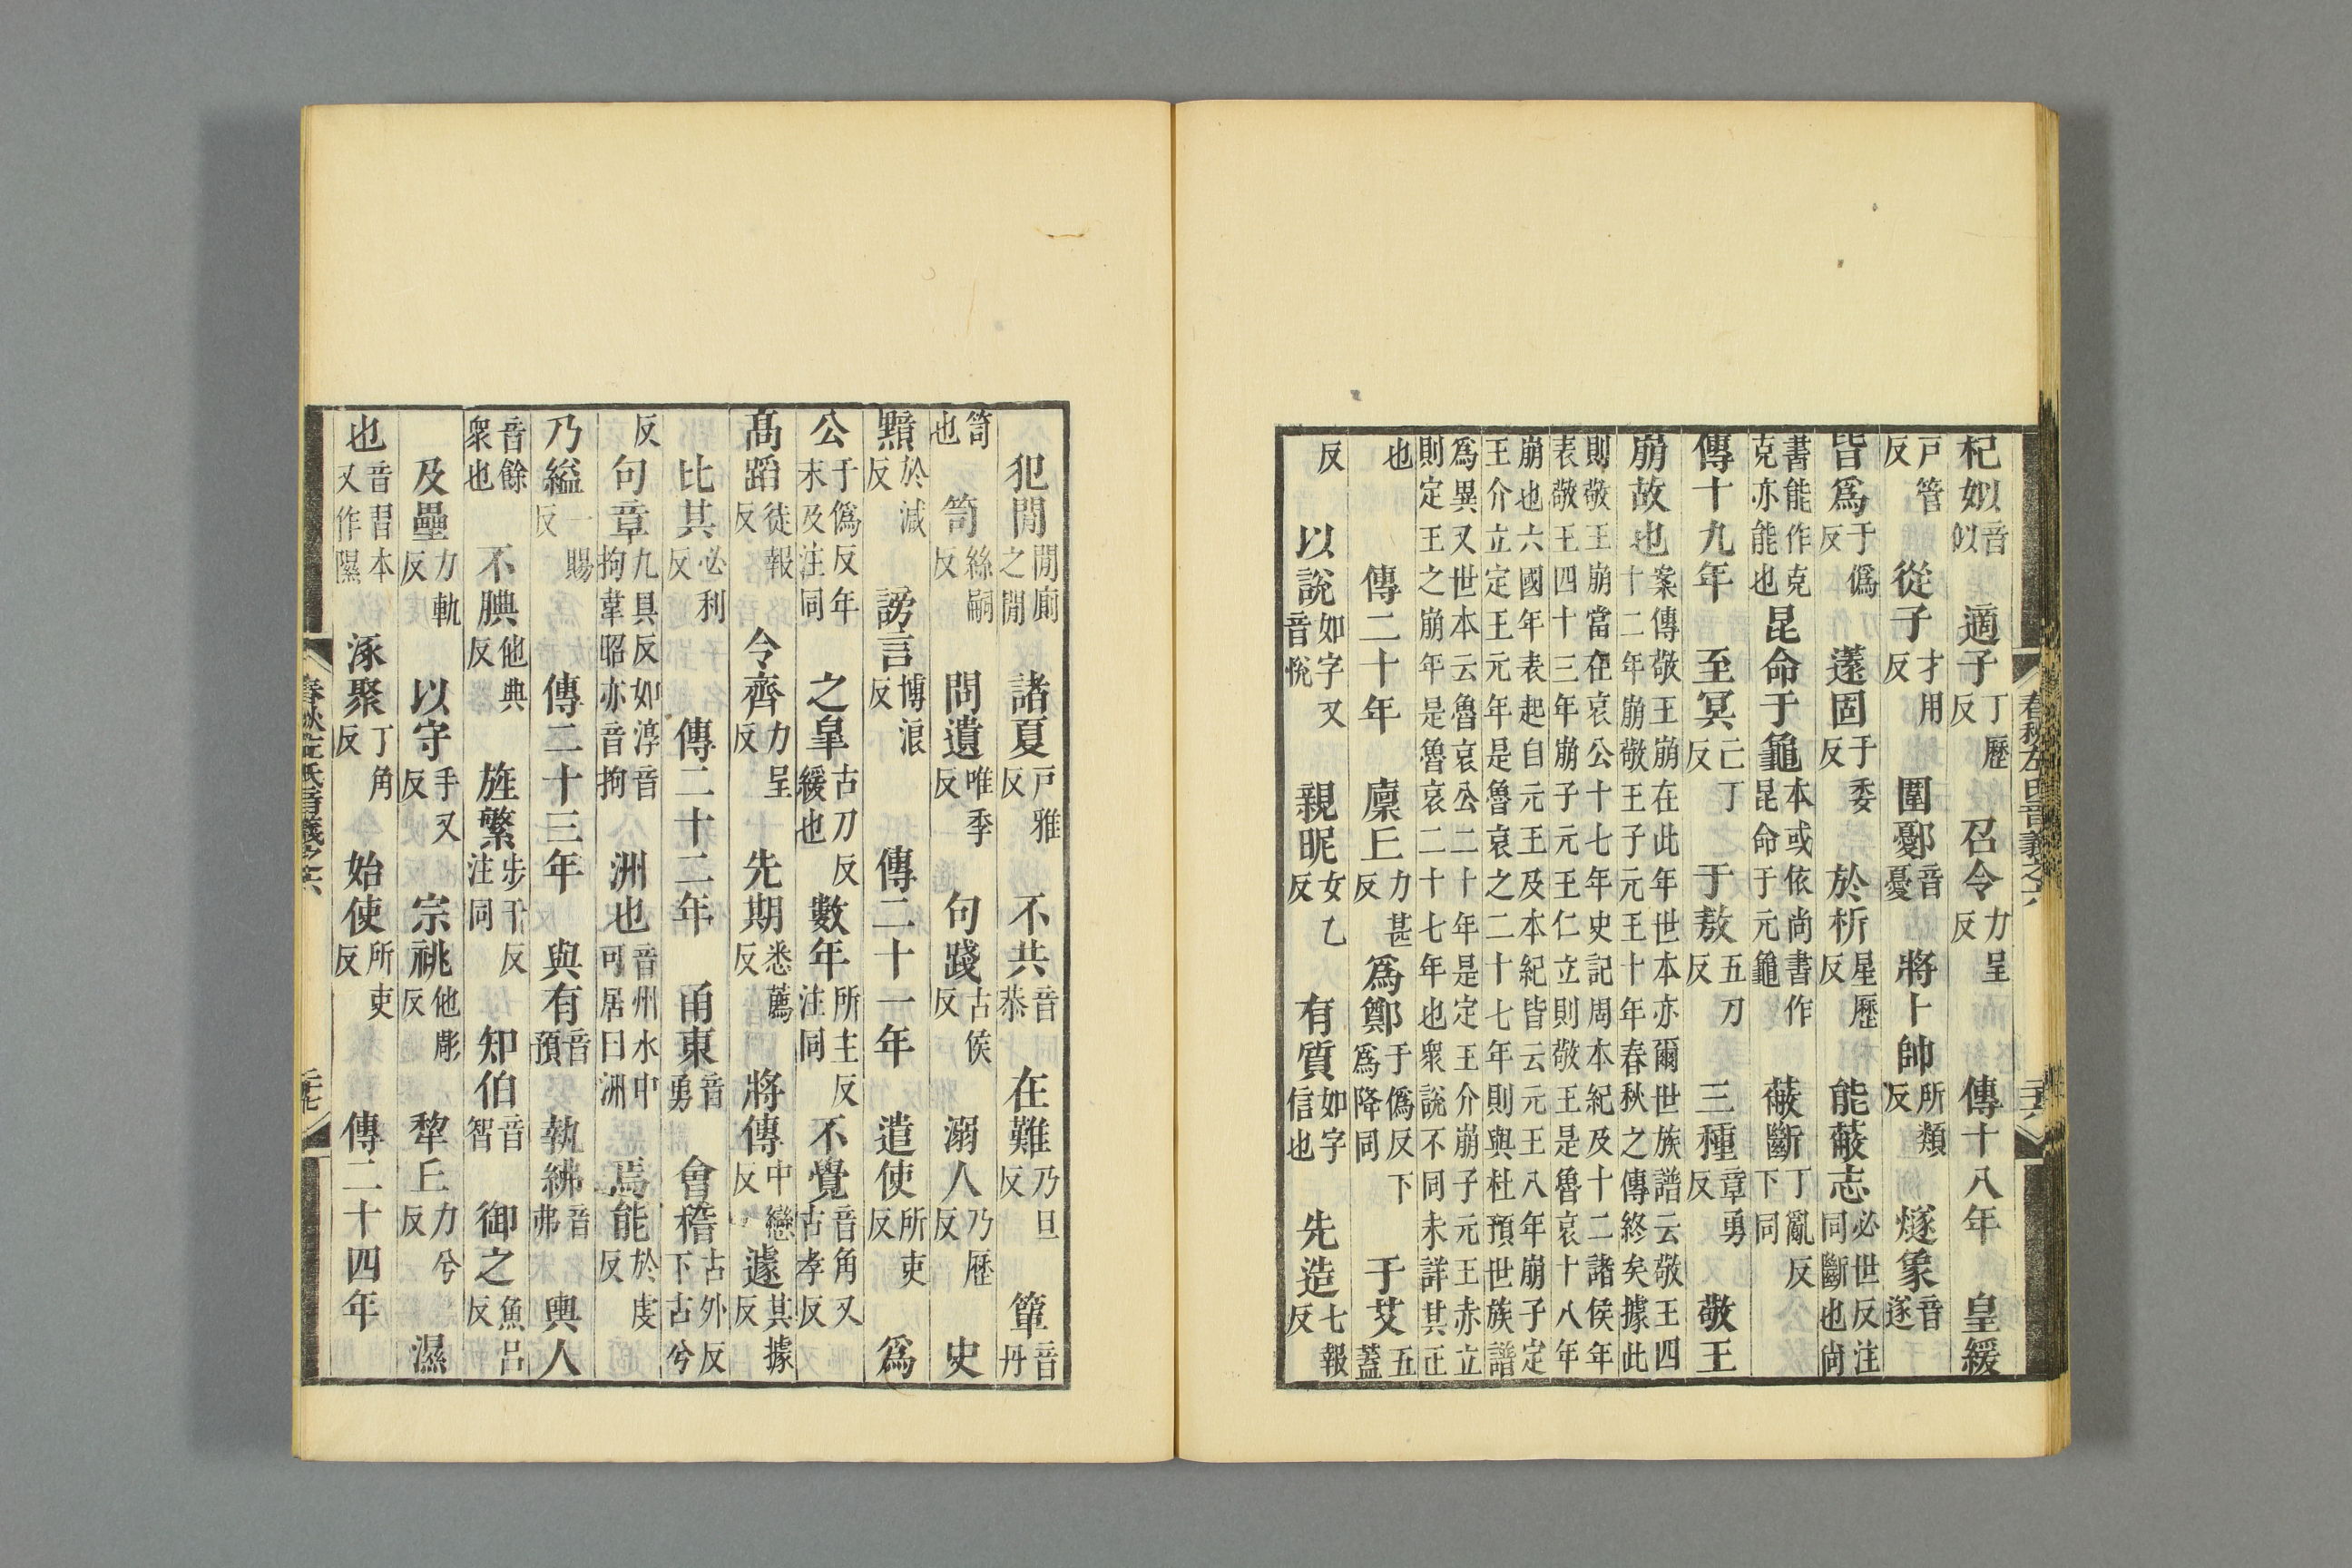 春秋左氏音義之六 二十六
杞姒音似 適子丁歷反 召令力呈反 傳十八年 皇緩
戶管反 從子才用反 圍鄾音憂 將卜帥所類反 燧象音遂
皆爲于僞反 薳固于委反 於析星歷反 能蔽志必世反注同斷也尙
書能作克克亦能也 昆命于龜本或依尙書作昆命于元龜 蔽斷丁亂反下同
傳十九年 至冥亡丁反 于敖五刀反 三種章勇反 敬王
崩故也案傳敬王崩在此年世本亦爾世族譜云敬王四十二年崩敬王子元王十年春秋之傳終矣據此
則敬王崩當在哀公十七年史記周本紀及十二諸侯年表敬王四十三年崩子元王仁立則敬王是魯哀十八年
崩也六國年表起自元王及本紀皆云元王八年崩子定王介立定王元年是魯哀之二十七年則與杜預世族譜
爲異又世本云魯哀公二十年是定王介崩子元王赤立則定王之崩年是魯哀二十七年也衆說不同未詳其正
也 傳二十年 廩丘力甚反 爲鄭于僞反下爲降同 于艾五蓋
反 以說如字又音悅 親昵女乙反 有質如字信也 先造七報反
犯閒閒廁之閒 諸夏戶雅反 不共音恭 在難乃旦反 簞音丹
笥也 笥絲嗣反 問遺唯季反 句踐古侯反 溺人乃歷反 史
黯於減反 謗言博浪反 傳二十一年 遣使所吏反 爲
公于僞反年末及注同 之皋古刀反緩也 數年所主反注同 不覺音角又古孝反
高蹈徒報反 令齊力呈反 先期悉薦反 將傳中戀反 遽其據反
比其必利反 傳二十二年 甬東音勇 會稽古外反下古兮
反 句章九具反如淳音拘韋昭亦音拘 洲也音州水中可居曰洲 焉能於虔反
乃縊一賜反 傳二十三年 與有音預 執紼音弗 輿人
音餘衆也 不腆他典反 旌繁步干反注同 知伯音智 御之魚呂反
及壘力軌反 以守手又反 宗祧他彫反 犂丘力兮反 濕
也音習本又作隰 涿聚丁角反 始使所吏反 傳二十四年
春秋左氏音義之六 二十七